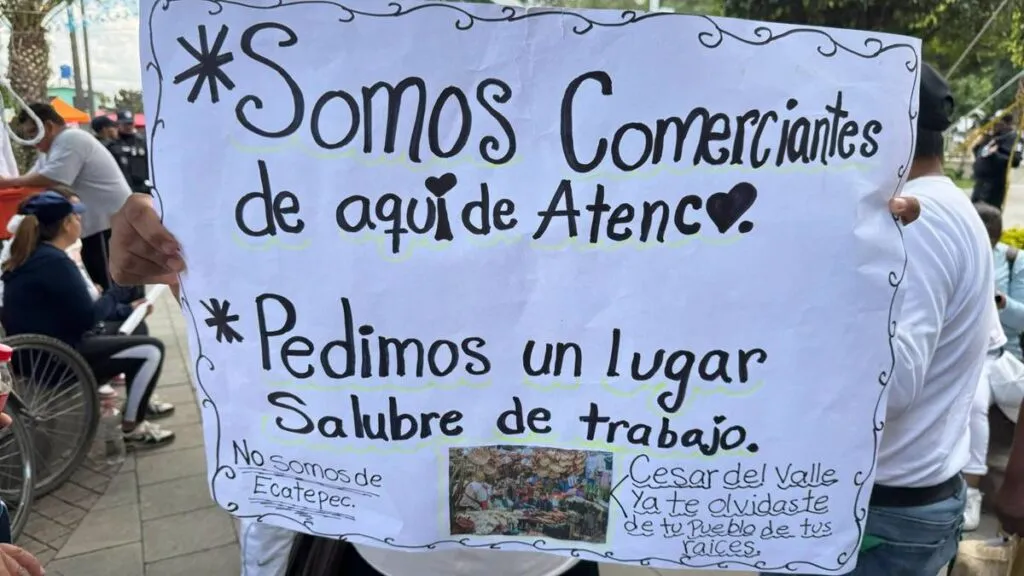 *Somos Comerciantes
de aquí de Atenco.
*Pedimos un lugar
Salubre de trabajo.
No somos de
Ecatepec.
Cesar del Valle
Ya te olvidaste
de tu Pueblo de tus
raíces.